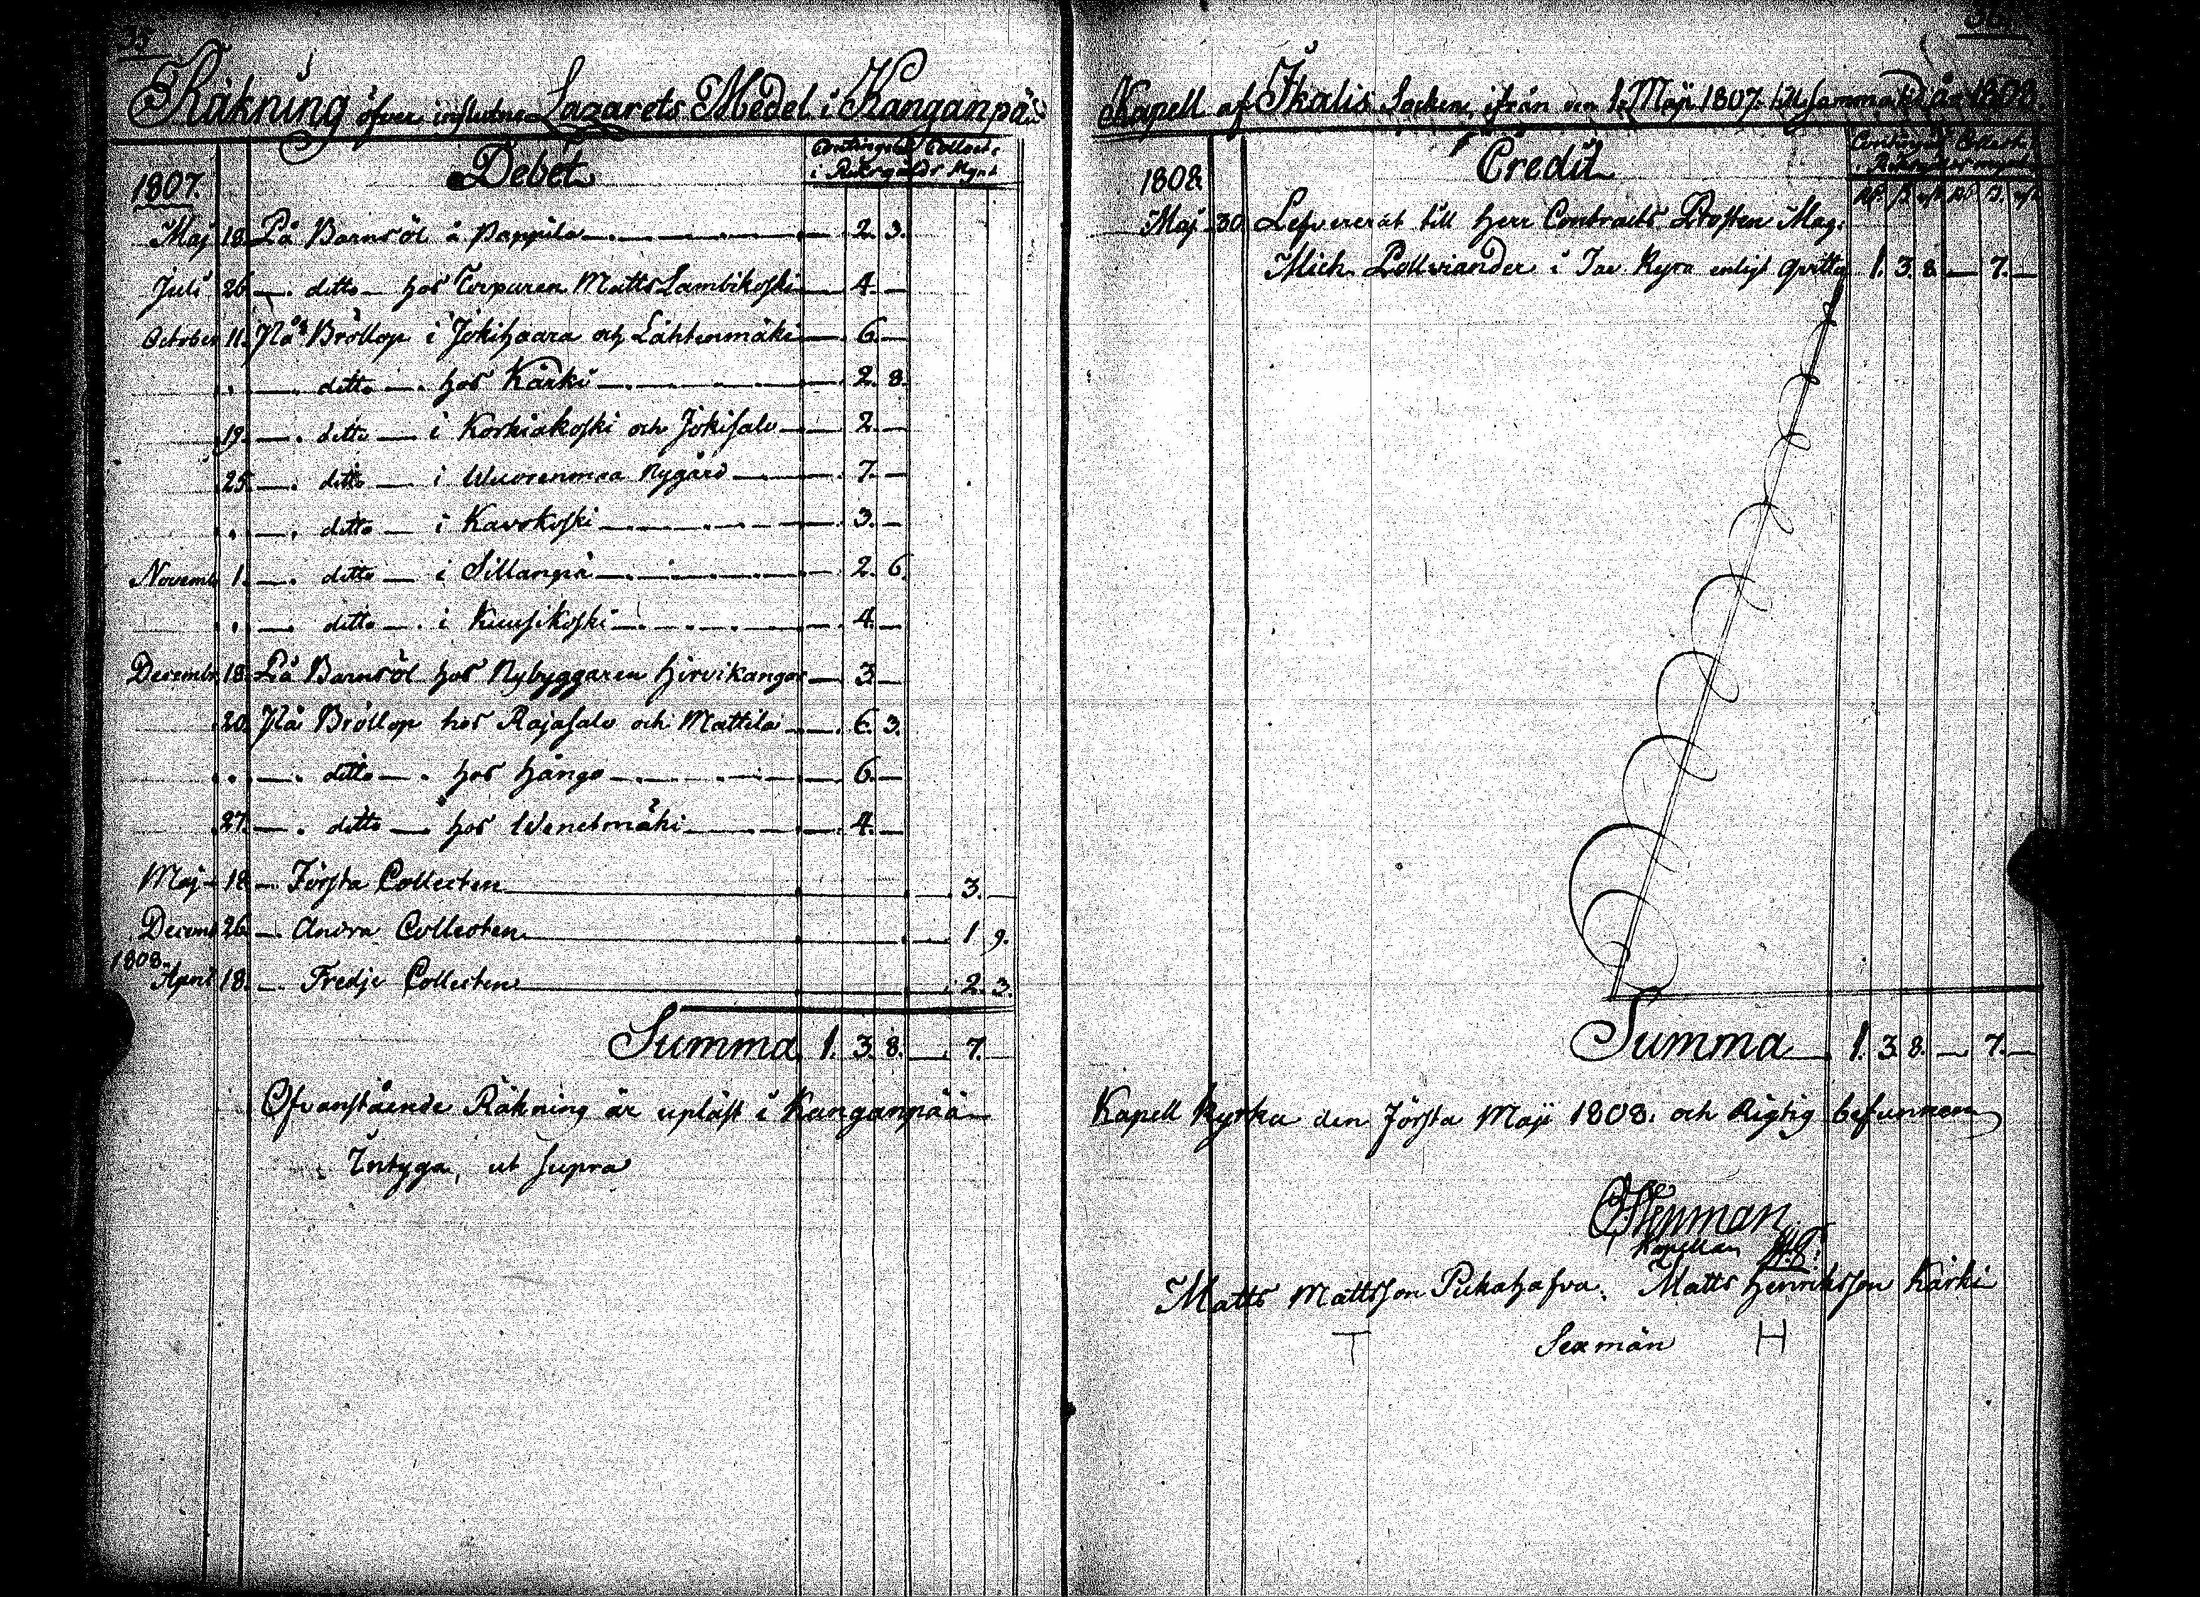 35
Räkning öfver influtne Lazarets Medel i Kanganpää
Debet
Contingent Collect.
i Riksgälds Mynt
1807.
Maj 18. På Barnsöl å Pappila — 2. 3.
Juli 26. — ditto — hos Torparen Matts Lambikoski — 4. —
October 11. På Bröllop i Jokihaara och Lähtenmäki — 6. —
" — ditto — hos Kärki — 2. 8.
19. — ditto — i Korkiakoski och Jokisalo — 2. —
25. — ditto — i Wuorenmaa Nygård — 7. —
" — ditto — i Kavokoski — 3. —
Novemb. 1. — ditto — i Sillanpä — 2. 6.
" — ditto — i Kuusikoski — 4. —
Decembr. 18. På Barnsöl hos Nybyggaren Hirvikangas — 3. —
20. På Bröllop hos Rajasalo och Mattila — 6. 3.
" — ditto — hos Hångo — 6. —
27. — ditto — hos Wenetmäki — 4. —
Maj 18. — Första Collecten — 3. —
Decemb 26. — Andra Collecten — 1. 9.
1808.
April 18. — Tredje Collecten — 2. 3.
Summa 1. 3. 8. — 7. —
Ofvanstående Räkning är upläst i Kanganpää
Intyga, ut supra
Kapell af Ikalis Socken, ifrån den 1. Maji 1807. till samma tid år 1808.
Credit
Contingent Collect.
i Riksgälds mynt
Rd. ß. rst. Rd. ß. rst.
1808.
Maj 30. Lefvererat till Herr Contracts Prosten Mag.
Mich. Pollviander i Tav. Kyro enligt Qvitto 1. 3. 8. — 7. —
Summa 1. 3. 8. — 7. —
Kapell Kyrka den första Maji 1808. och Rigtig befunnen
Kapellan
Matts Mattsson Pukahafva. Matts Henriksson Kärki
T Sexmän H